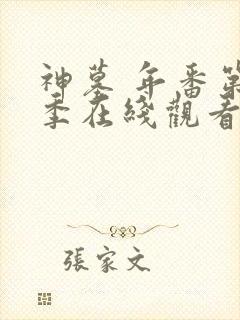 神墓 年番第
季在綫觀看
張家文